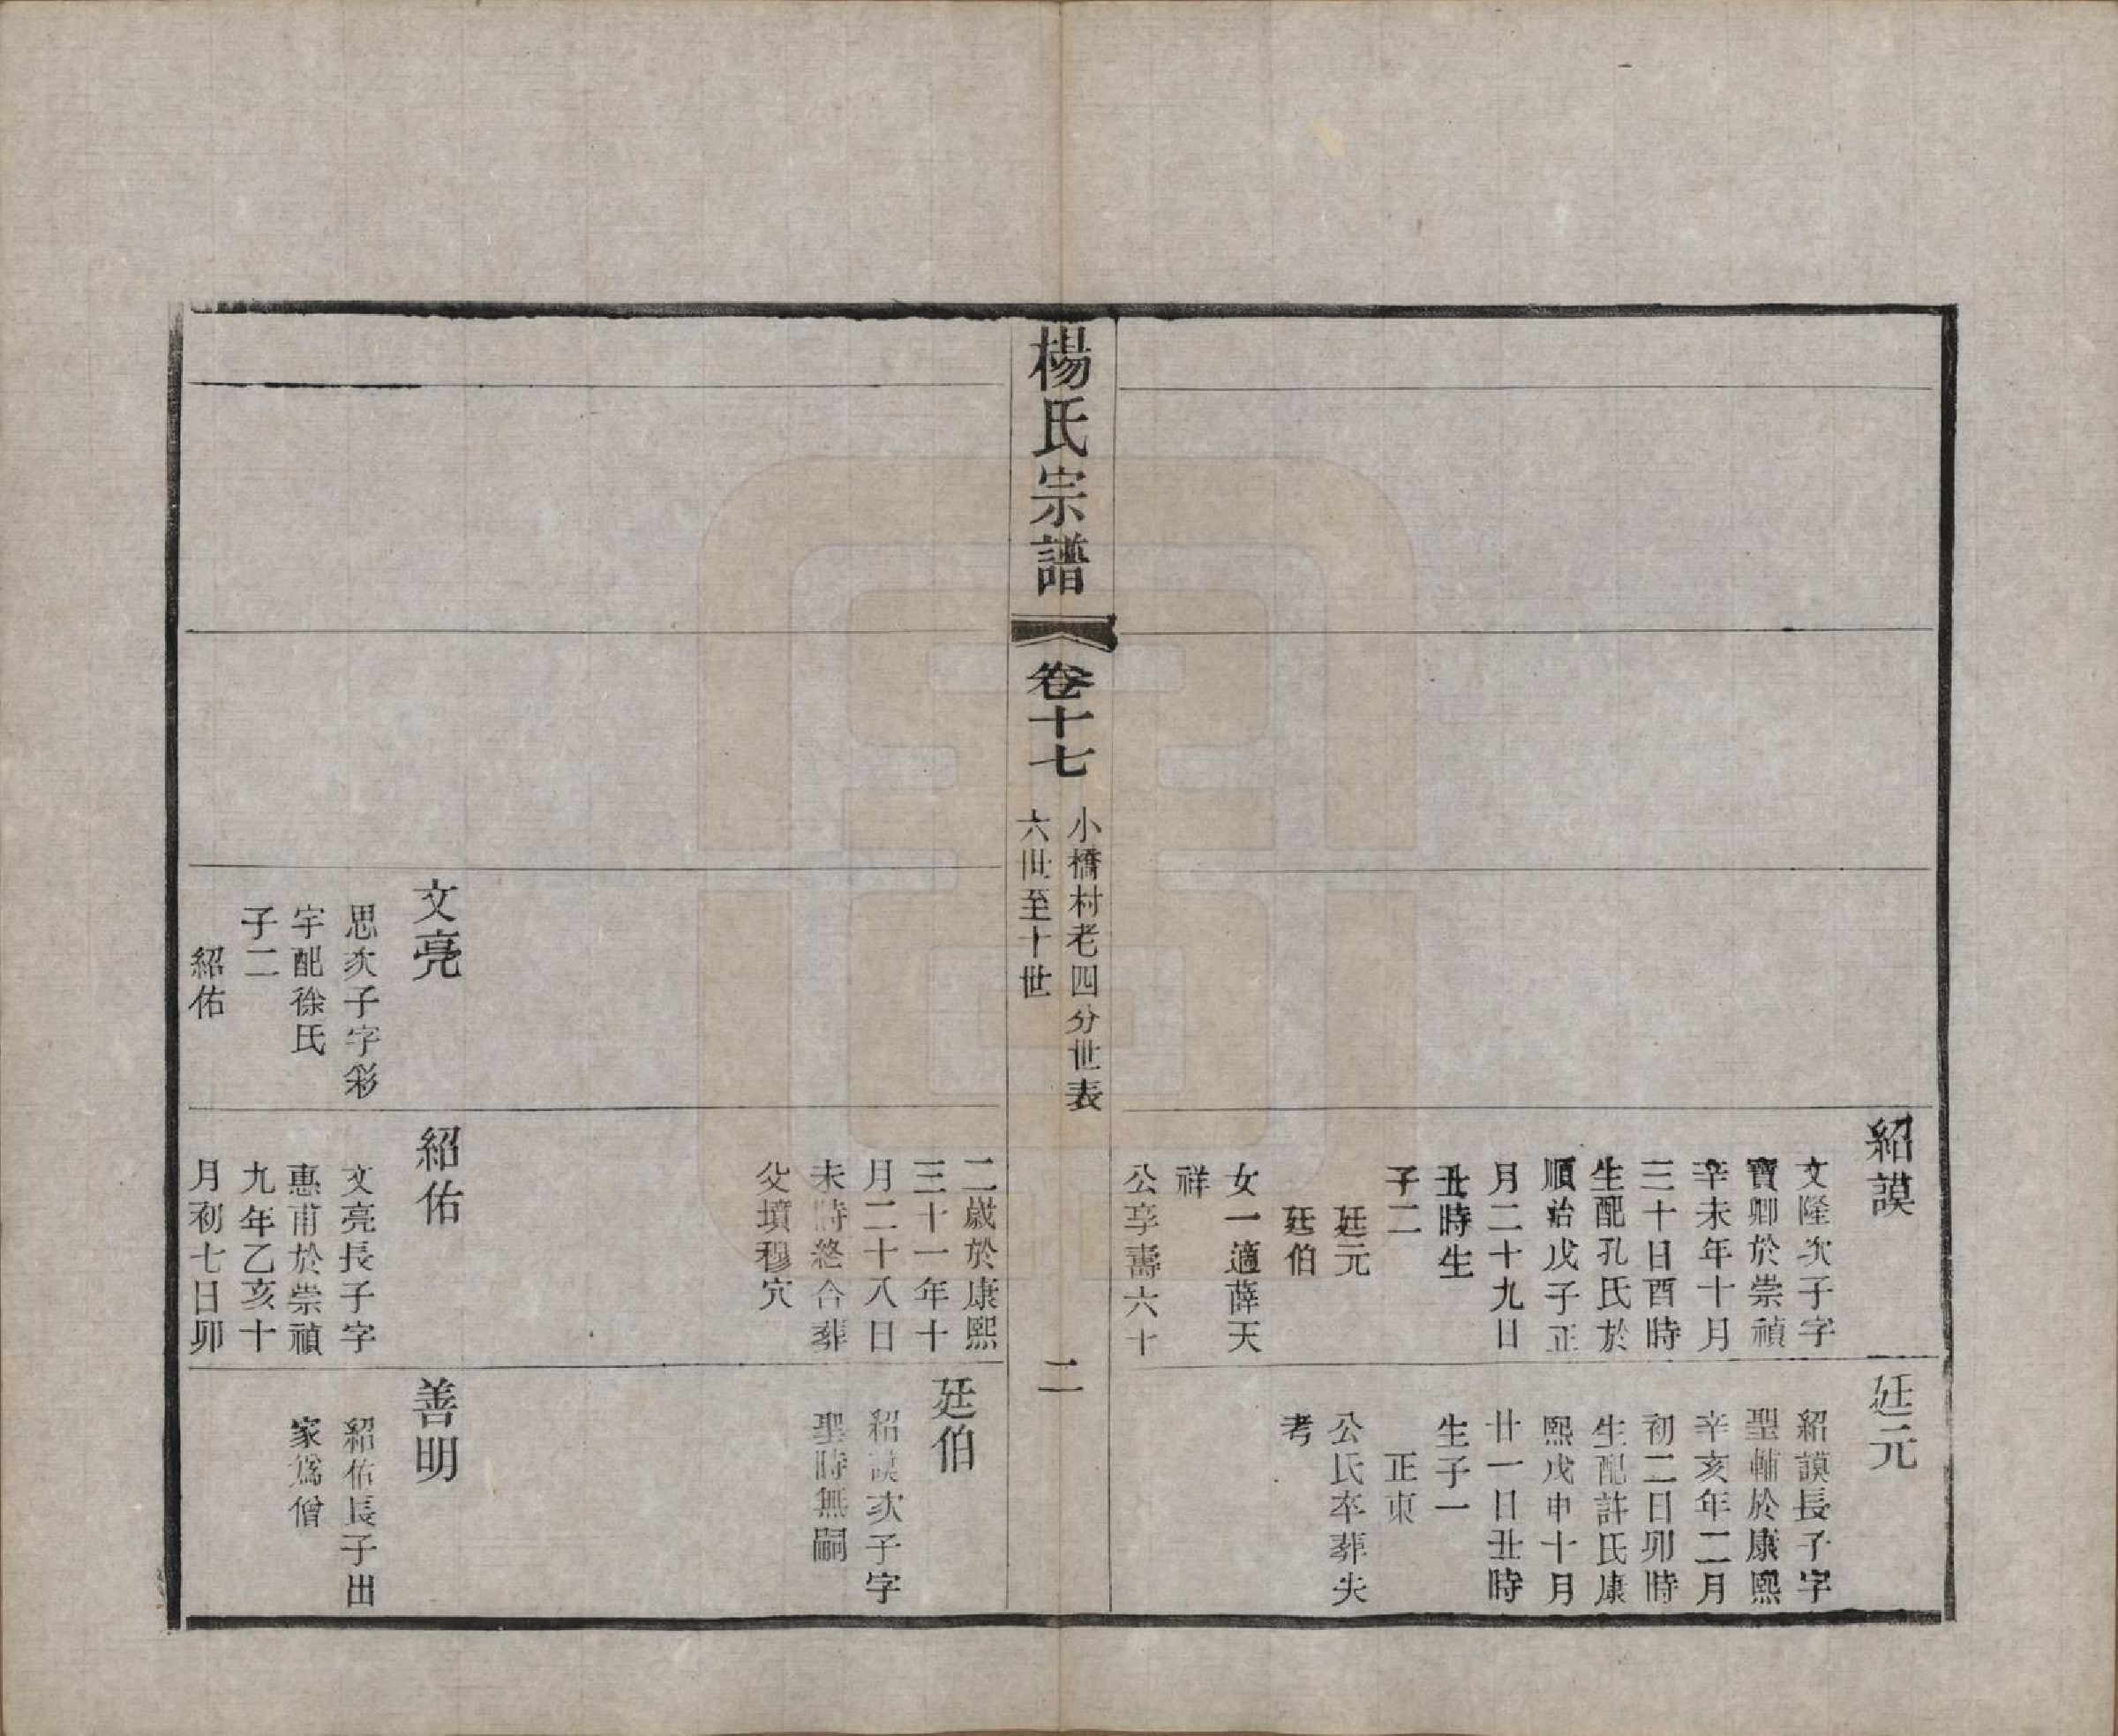 紹謨
文隆次子字
寶卿於崇禎
辛未年十月
三十日酉時
生配孔氏於
順治戊子正
月二十九日
丑時生
子二
廷元
廷伯
女一適薛天
祥
公享壽六十
廷元
紹謨長子字
聖輔於康熙
辛亥年二月
初二日卯時
生配許氏康
熙戊申十月
廿一日丑時
生子一
正東
公氏卒葬失
考
楊氏宗譜
卷十七
小橋村老四分世表
六世至十世
二
二歲於康熙
三十一年十
月二十八日
未時終合葬
父墳穆穴
廷伯
紹謨次子字
聖時無嗣
文亮
思次子字彩
宇配徐氏
子二
紹佑
紹佑
文亮長子字
惠甫於崇禎
九年乙亥十
月初七日卯
善明
紹佑長子出
家爲僧